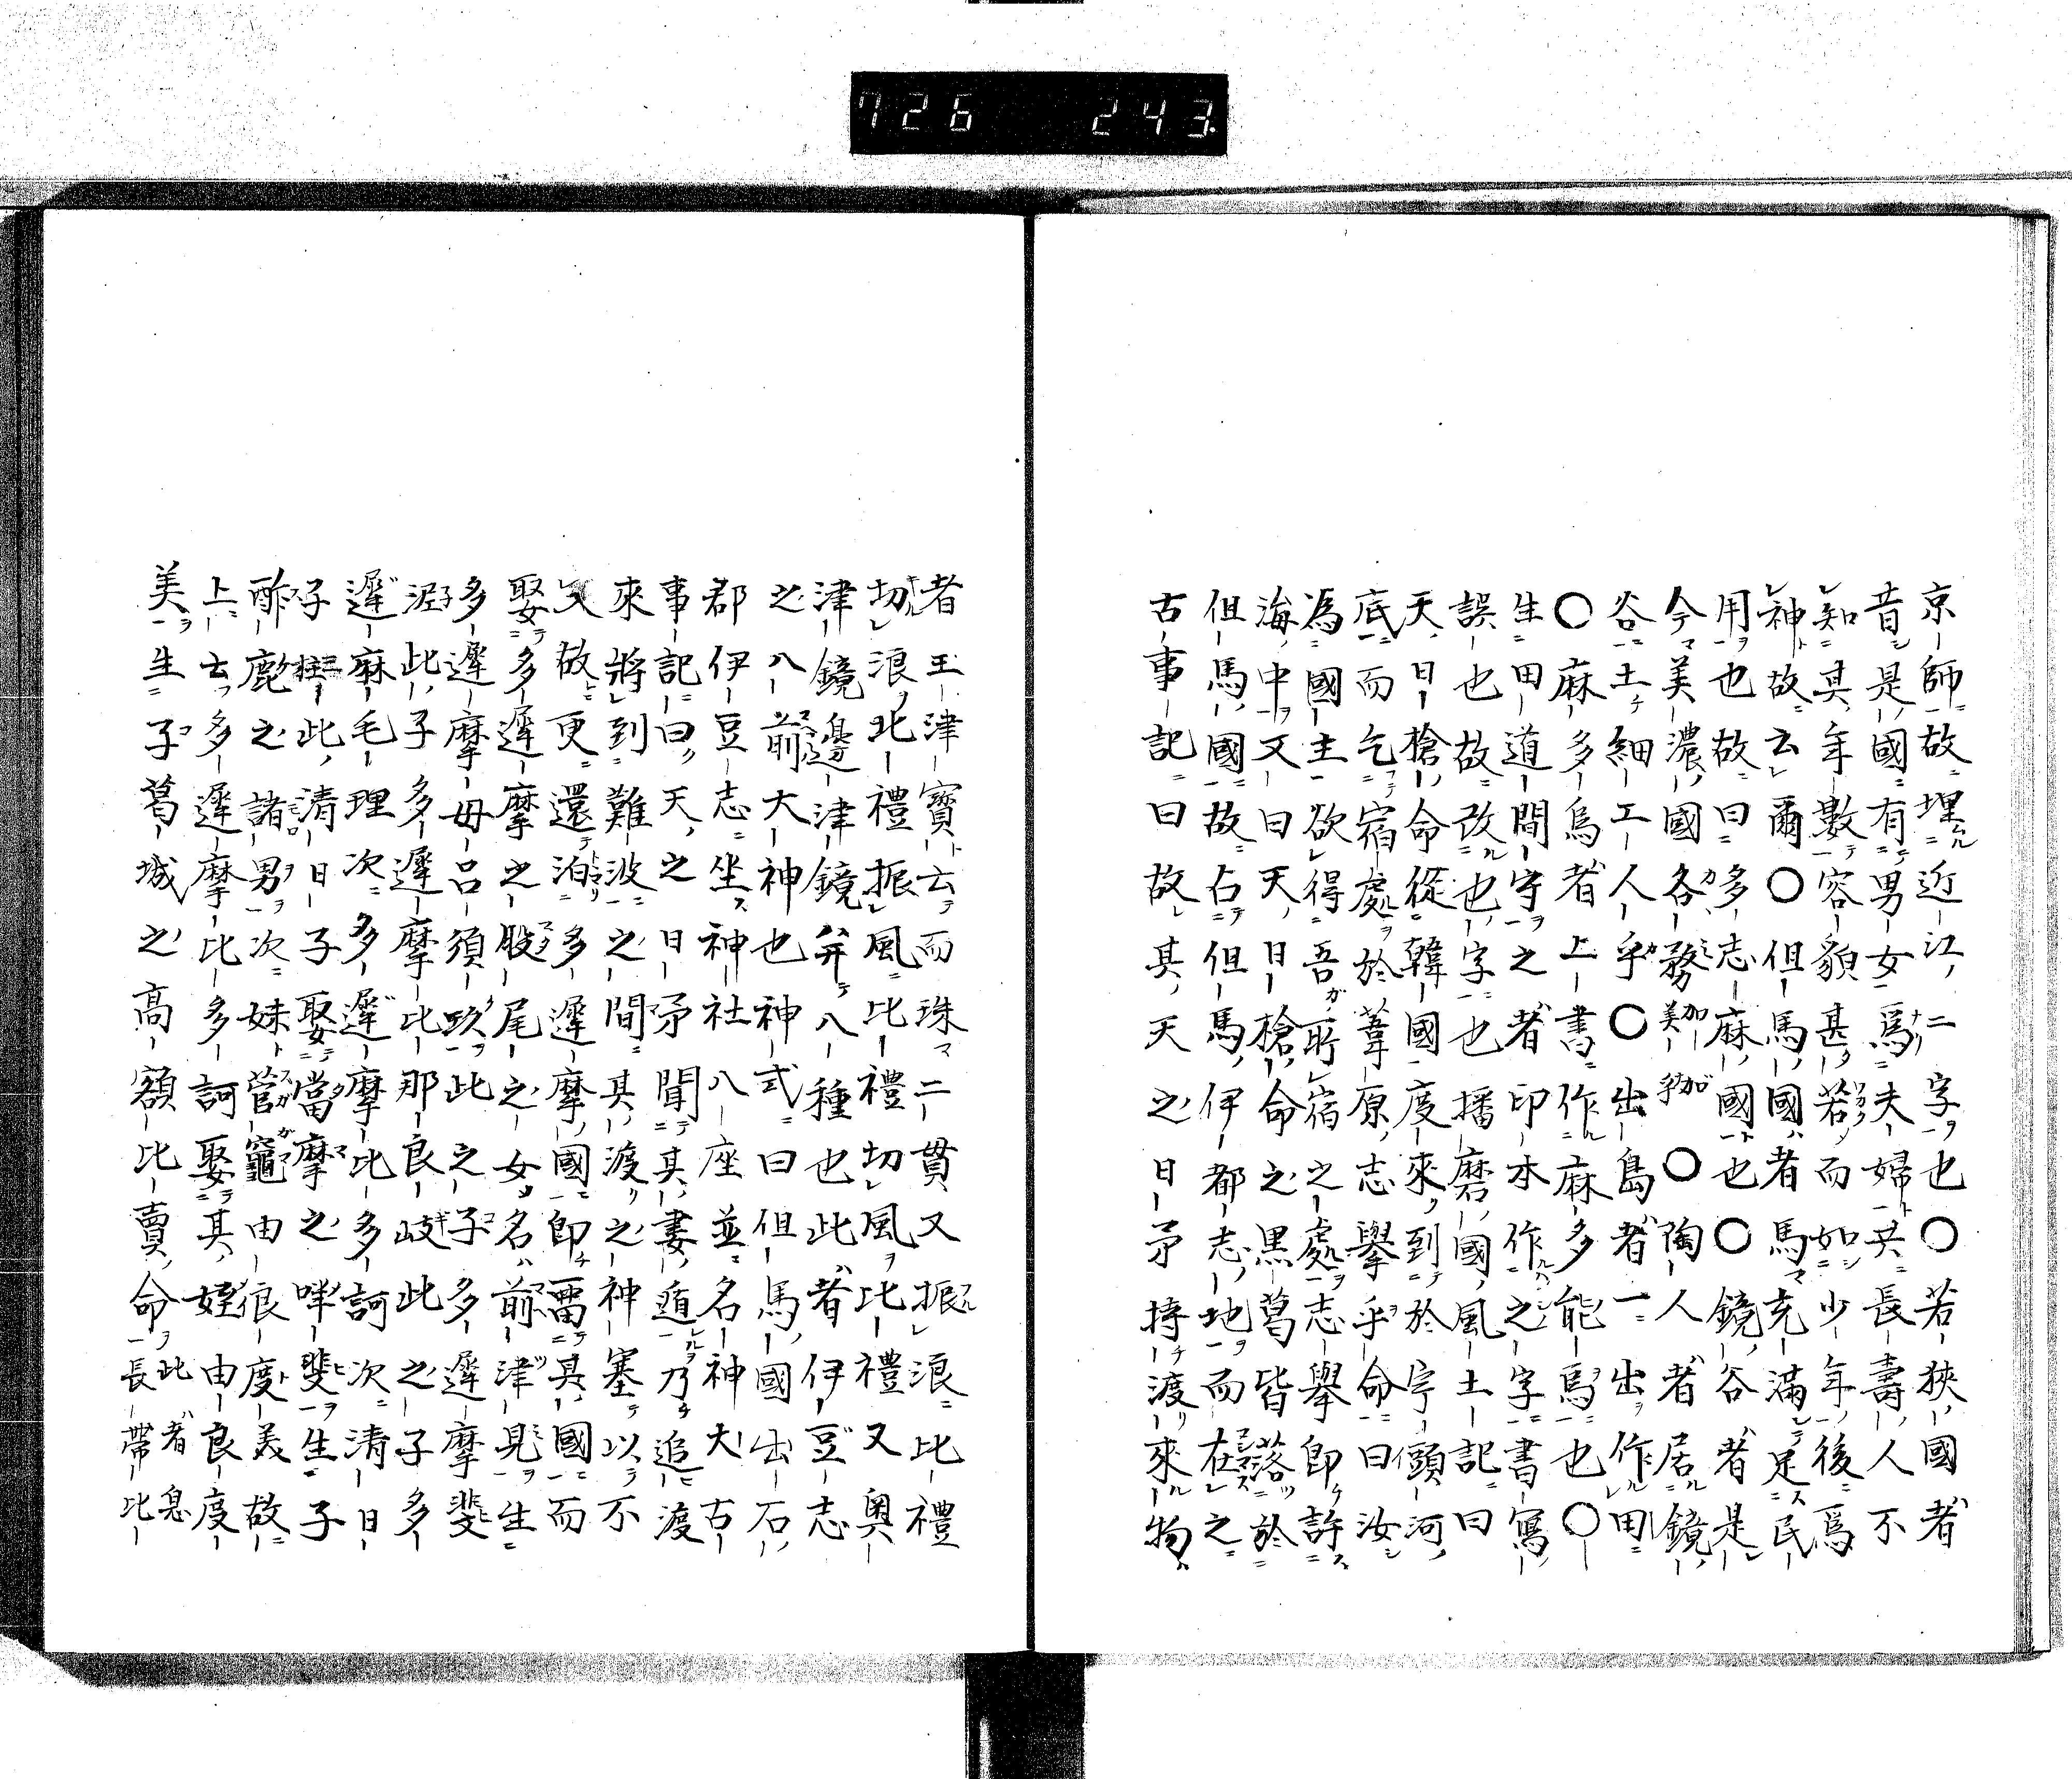 726 243
京師故埋近江二字也〇若狹國者
昔是國有男女爲夫婦共長壽人不
知其年數容貌甚若而如少年後爲
神故云爾〇但馬國者馬克滿足民
用也故曰多志麻國也〇鏡谷者是
今美濃國各務加美加〇陶人者居鏡
谷土細工人乎〇出島者一出作田
〇麻多烏者上書作麻多能烏也〇
生田道間守之者印本作之字書寫
誤也故改也字也播磨國風土記曰
天日槍命從韓國度來到於宇頭河
底而乞宿處於葦原志擧乎命曰汝
爲國主欲得吾所宿之處志擧即許
海中又曰天日槍命之黒葛皆落於
但馬國故占但馬伊都志地而在之
古事記曰故其天之日矛持渡來物
者玉津寳云而珠二貫又振浪比禮
切浪比禮振風比禮切風比禮又奥
津鏡邊津鏡并八種也此者伊豆志
之八前大神也神式曰但馬國出石
郡伊豆志坐神社八座並名神大古
事記曰天之日矛聞其妻遁乃追渡
來將到難波之間其渡之神塞以不
入故更還泊多遲摩國即留其國而
娶多遲摩之股尾之女名前津見生
多遲摩母呂須玖此之子多遲摩斐
泥此子多遲摩比那良岐此之子多
遲麻毛理次多遲摩比多訶次清日
子此清日子娶當摩之咩斐生子
酢鹿之諸男次妹菅竈由良度美故
上云多遲摩比多訶娶其姪由良度
美生子葛城之高額比賣命此者息
長帶比